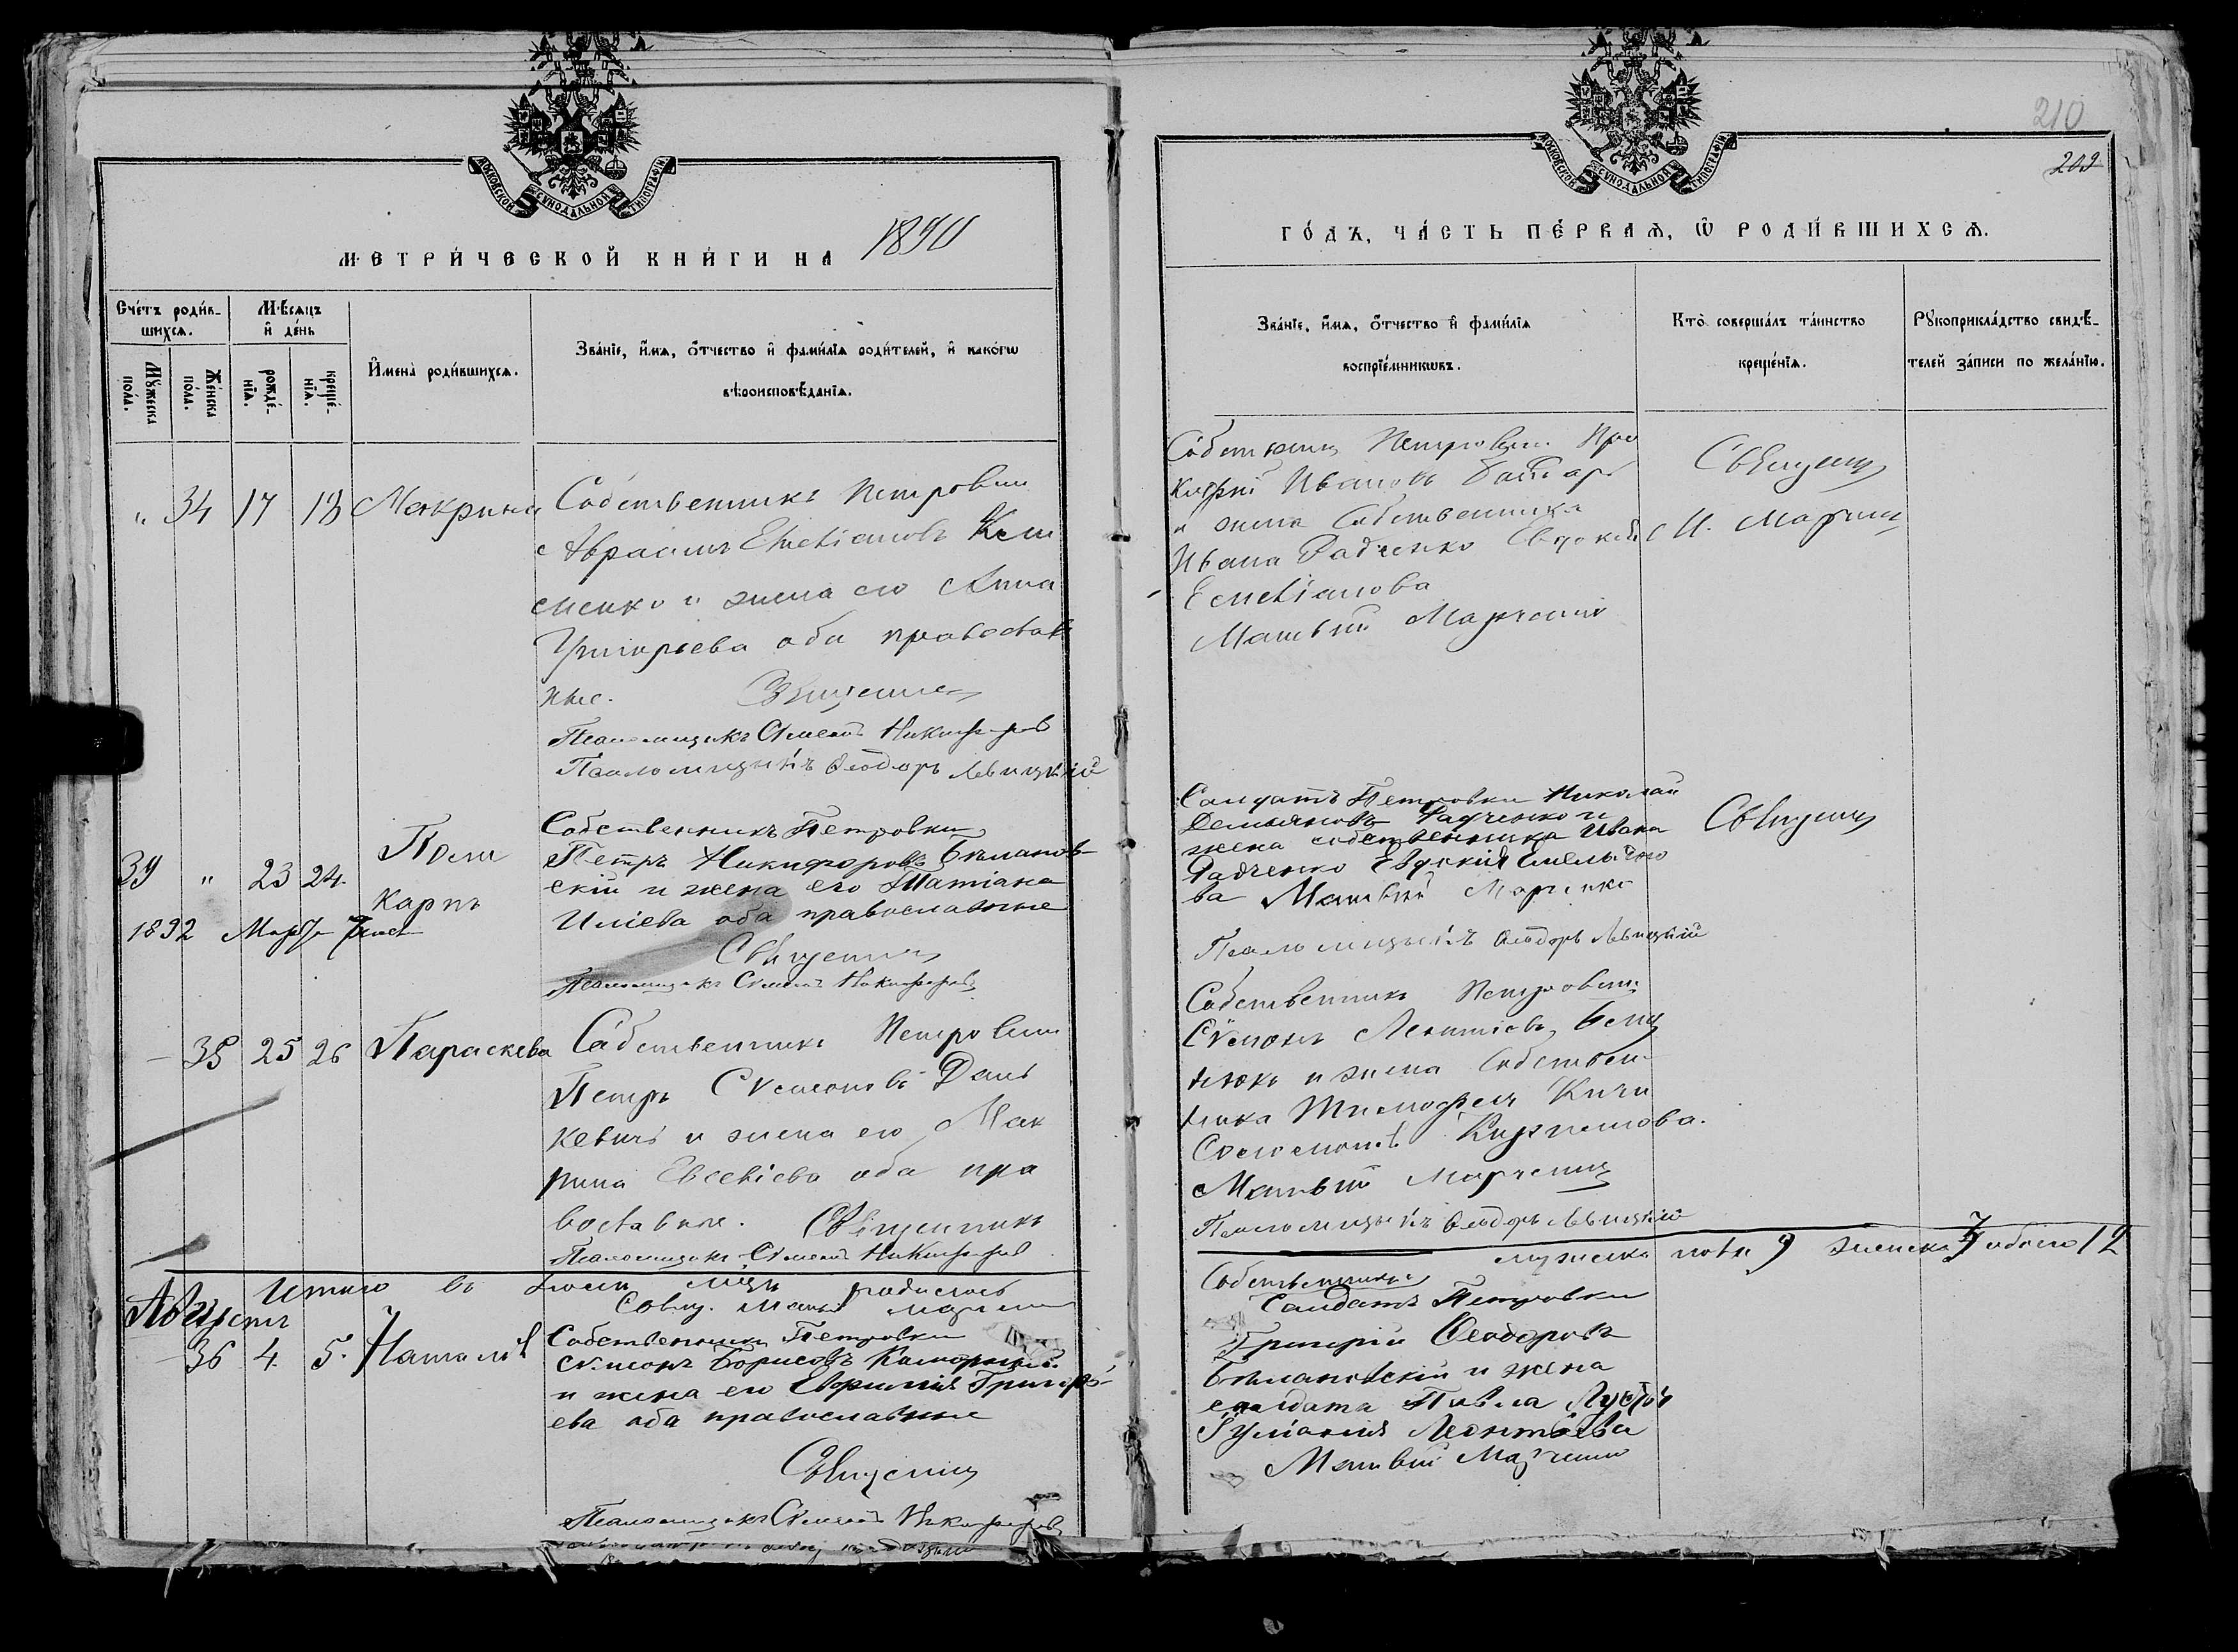 210
209
МОСКОВСКОЙ СѴНОДАЛЬНОЙ ТИПОГРАФІИ
МОСКОВСКОЙ СѴНОДАЛЬНОЙ ТИПОГРАФІИ
МЕТРИ́ЧЕСКОЙ КНИ́ГИ НА 1890
ГО́ДЪ, ЧА́СТЬ ПЕ́РВАѦ, Ѡ РОДИ́ВШИХСѦ.
Сче́тъ роди́в-
шихсѧ.
Мꙋ́жеска
по́ла.
Же́нска
по́ла.
Мѣ́сѧцъ
и҆ де́нь
рожде́-
нїѧ.
креще́-
нїѧ.
И҆мена̀ роди́вшихсѧ.
Зва́нїе, и҆́мѧ, ѻ҆́тчество и҆ фами́лїѧ роди́телей, и҆ како́гѡ
вѣроисповѣ́данїѧ.
Зва́нїе, и҆́мѧ, ѻ҆́тчество и҆ фами́лїѧ
воспрїе́мникѡвъ.
Кто̀ соверша́лъ та́инство
креще́нїѧ.
Рꙋкоприкла́дство свидѣ́-
телей за́писи по жела́нїю.
" 34 17 18 Макрина
Собственникъ Петровки
Авраамъ Емеліановъ
сменко и жена его Анна
Григорьева оба православ
ные.
Священник
Псаломщикъ Симеонъ Никифоровъ
Псаломщикъ Ѳеодоръ Левицкій
Петровки Про
кофій Ивановъ
и жена Собственника
Ивана Радченко Евдокія
Емеліанова
Матвій Марченко
Священ
М. Марченко
39 " 23 24.
Поли
карпъ
1892 Марта 7
Собственникъ Петровки
Петръ Никифоровъ Бѣлановскій
скій и жена его Татіана
Иліева оба православные
Священник
Псаломщикъ Симеонъ Никифоровъ
Солдатъ Петровки Николай
Демьяновъ Радченко и
жена собственника Ивана
Радченко Евдокія Емельяно
ва Матвій Марченко
Псаломщикъ Ѳеодоръ Левицкій
Священ
— 35 25 26 Параскева
Собственникъ Петровки
Петръ Симеоновъ Дань
кевичъ и жена его Мак
рина Евсевіева оба пра
вославные. Священникъ
Псаломщикъ Симеонъ Никифоровъ
Собственникъ Петровки
Симеонъ Леонтіевъ
и жена собствен
ника Тимофея
Матвій Марченко
Псаломщикъ Ѳеодоръ Левицкій
Итого въ іюлѣ м-цѣ родилось
мужеска пола 9 женска 7 обоего 12
Августъ
— 36 4. 5. Наталія
Собственникъ Петровки
Симеонъ Борисовъ
и жена его Евфимія Григорь-
ева оба православные
Священник
Псаломщикъ Симеонъ Никифоровъ
Собственникъ
Солдатъ Петровки
Григорій Ѳеодоровъ
Бѣлановскій и жена
солдата Павла
Іуліанія Леонтьева
Матвій Марченко